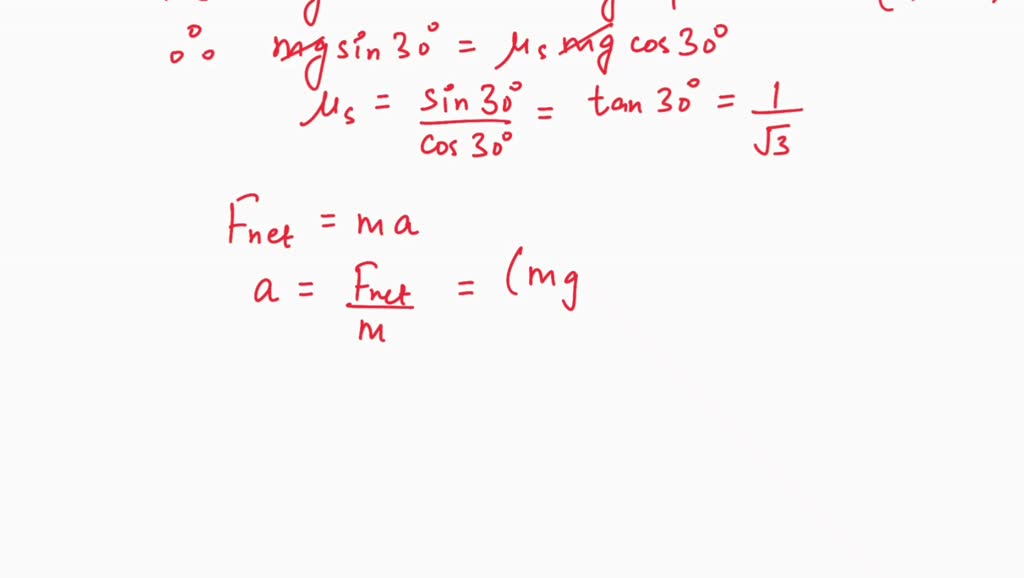 ∴ mg sin 30° = μs mg cos 30°
μs = sin 30° / cos 30° = tan 30° = 1 / √3
Fnet = ma
a = Fnet / m = (mg